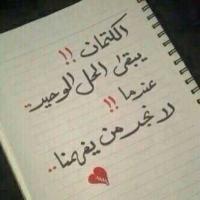 الكتمان !!
يبقى الحل الوحيد..
عندما !!
لا نجد من يفهمنا..